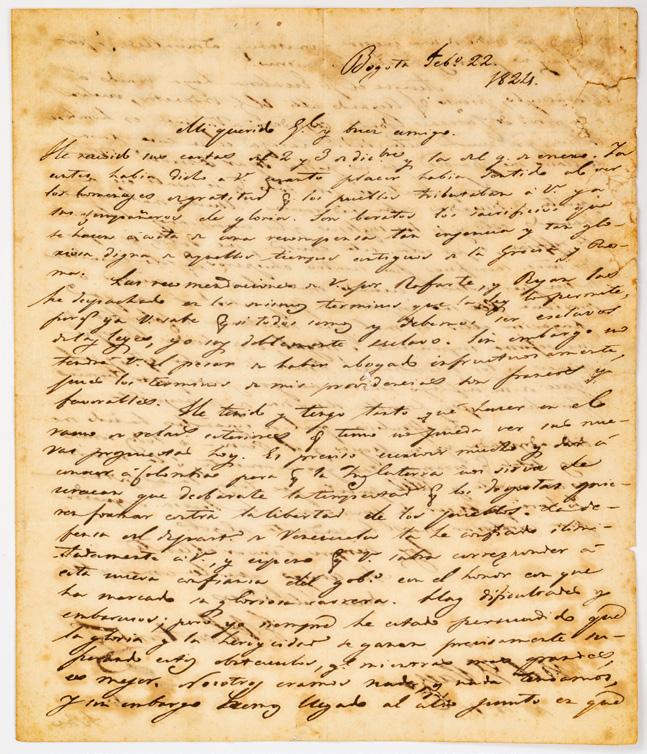 Bogotá Feb.o 22.
1824.
Mi querido G.l y buen amigo.
He recivido sus cartas del 2 y 3 de diciembre y la del 9 de enero. Ya
antes habia dicho a V. cuanto placer habia sentido al ver
los homenajes de gratitud q los pueblos tributaban a V. y a
sus compañeros de gloria. Son baratos los sacrificios que
se hacen a costa de una recompensa tan ingenua y tan glo-
riosa, digna de aquellos tiempos antiguos de la Grecia y Ro-
ma. Las recomendaciones de V. por y Ryan las
he despachado en los mismos terminos que la ley lo permite,
porq ya V. sabe q si todos somos y debemos ser esclavos
de las leyes, yo soy doblemente esclavo. Sin embargo no
tendrá V. el pesar de haber abogado infructuosamente,
pues los terminos de mis providencias son francos y
favorables. He tenido y tengo tanto que hacer en el
ramo de relac.s exteriores q temo no pueda ver sus nue-
vas propuestas hoy. Es preciso escribir mucho y dar a
conocer a Colombia para q la Inglaterra nos sirva de
que desbarate la tempestad q los despotas quie-
ren formar contra la libertad de los pueblos. La de-
fensa del depart.o de Venezuela la he confiado ilimi-
tadamente a V. y espero q V. sabra corresponder a
esta nueva confianza del gob.o con el honor con que
ha marcado su gloriosa carrera. Hay dificultades y
embarazos; pero yo siempre he estado persuadido que
la gloria y la heroicidad se ganan precisamente su-
perando estos obstaculos, y mientras mas grandes
es mejor. Nosotros eramos nada, y nada teniamos,
y sin embargo hemos llegado al alto punto en que